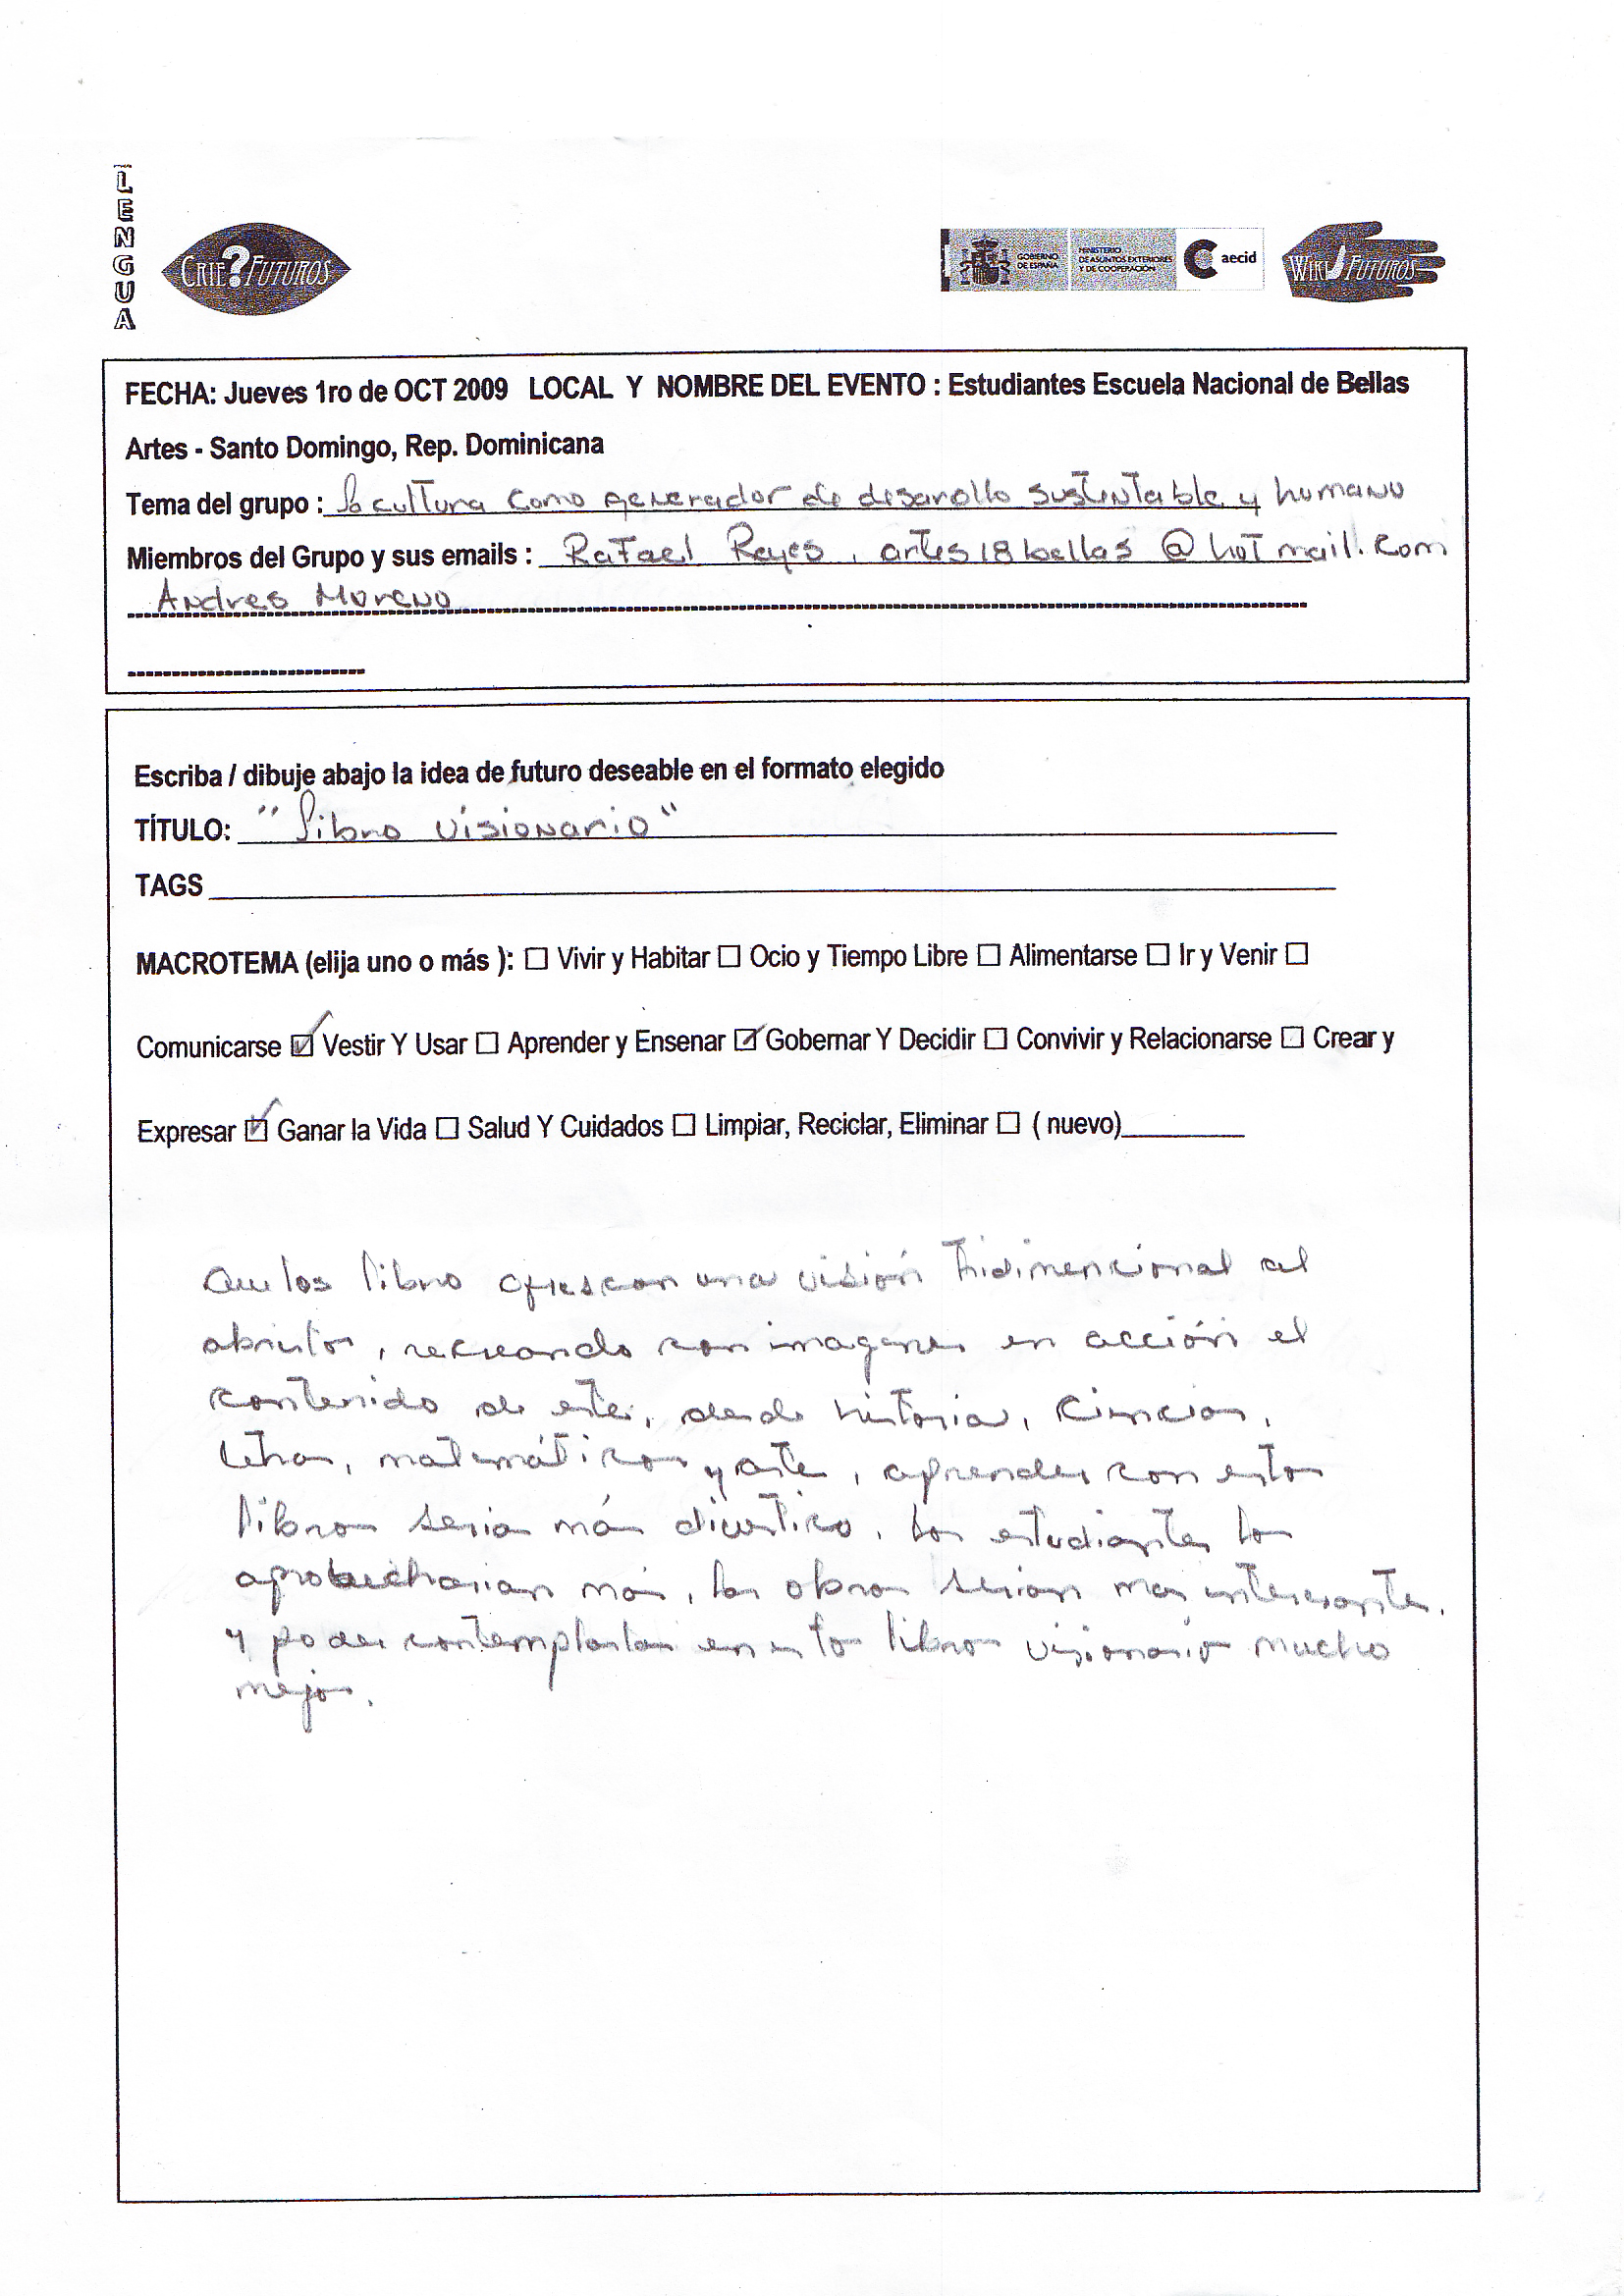 LENGUA
CRIE?FUTUROS
GOBIERNO DE ESPAÑA
MINISTERIO DE ASUNTOS EXTERIORES Y DE COOPERACIÓN
aecid
WIKI FUTUROS
FECHA: Jueves 1ro de OCT 2009 LOCAL Y NOMBRE DEL EVENTO : Estudiantes Escuela Nacional de Bellas
Artes - Santo Domingo, Rep. Dominicana
Tema del grupo : La cultura como generador de desarollo sustentable y humano
Miembros del Grupo y sus emails : Rafael Reyes, artes18bellas@hotmail.com
Andres Moreno
Escriba / dibuje abajo la idea de futuro deseable en el formato elegido
TÍTULO: "Libro visionario"
TAGS
MACROTEMA (elija uno o más ): ☐ Vivir y Habitar ☐ Ocio y Tiempo Libre ☐ Alimentarse ☐ Ir y Venir ☐
Comunicarse ☑ Vestir Y Usar ☐ Aprender y Ensenar ☑ Gobernar Y Decidir ☐ Convivir y Relacionarse ☐ Crear y
Expresar ☑ Ganar la Vida ☐ Salud Y Cuidados ☐ Limpiar, Reciclar, Eliminar ☐ ( nuevo)
Que los libro ofrescan una visión tridimencional al
abrirlos, recreando con imagenes en acción el
contenido de este, desde historia, ciencias,
letras, matemáticas y arte, aprender con estos
libros seria más divertido, los estudiantes lo
aprobecharian más, las obras serian mas interesantes,
y poder contemplarlas en estos libros visionario mucho
mejor.